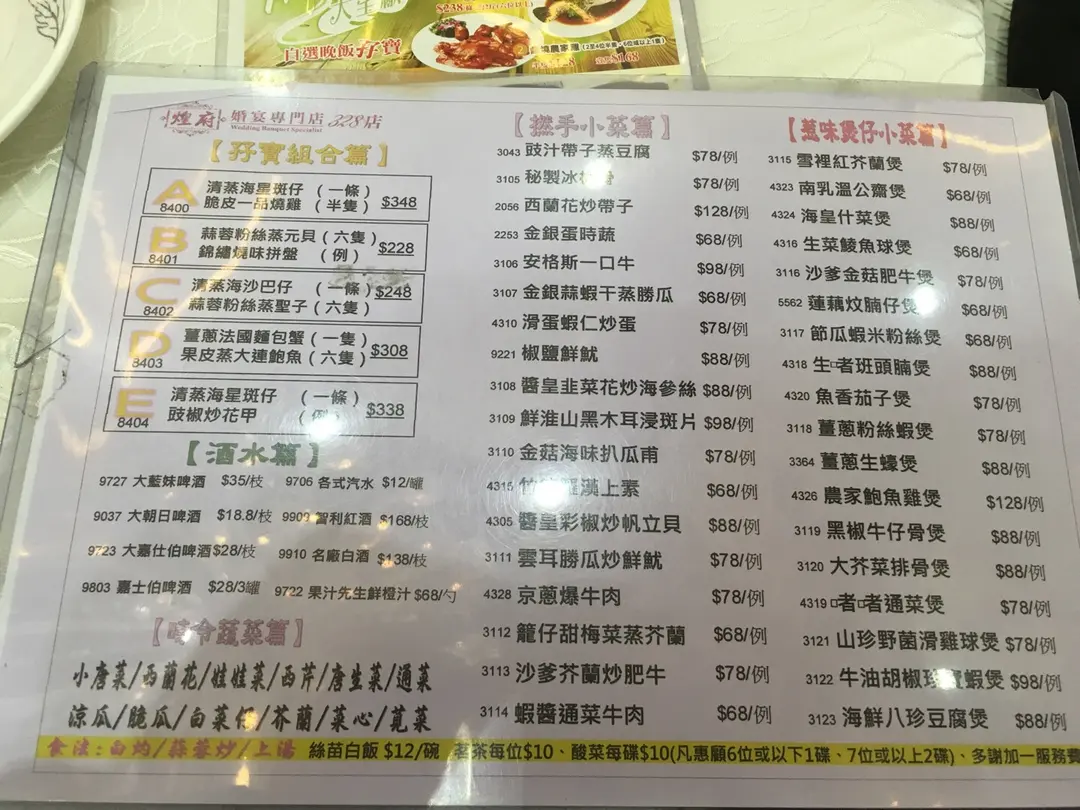 $238
自選晚飯孖寶
$168
煌府 婚宴專門店 328店
Wedding Banquet Specialist
【孖寶組合篇】
A 8400 清蒸海星斑仔 (一條)
脆皮一品燒雞 (半隻) $348
B 8401 蒜蓉粉絲蒸元貝 (六隻)
錦繡燒味拼盤 (例) $228
C 8402 清蒸海沙巴仔 (一條)
蒜蓉粉絲蒸聖子 (六隻) $248
D 8403 薑蔥法國麵包蟹 (一隻)
果皮蒸大連鮑魚 (六隻) $308
E 8404 清蒸海星斑仔 (一條)
豉椒炒花甲 (例) $338
【酒水篇】
9727 大藍妹啤酒 $35/枝 9706 各式汽水 $12/罐
9037 大朝日啤酒 $18.8/枝 9909 智利紅酒 $168/枝
9723 大嘉仕伯啤酒 $28/枝 9910 名廠白酒 $138/枝
9803 嘉士伯啤酒 $28/3罐 9722 果汁先生鮮橙汁 $68/勺
【時令蔬菜篇】
小唐菜/西蘭花/娃娃菜/西芹/唐生菜/通菜
涼瓜/脆瓜/白菜仔/芥蘭/菜心/莧菜
【撚手小菜篇】
3043 豉汁帶子蒸豆腐 $78/例
3105 秘製冰 骨 $78/例
2056 西蘭花炒帶子 $128/例
2253 金銀蛋時蔬 $68/例
3106 安格斯一口牛 $98/例
3107 金銀蒜蝦干蒸勝瓜 $68/例
4310 滑蛋蝦仁炒蛋 $78/例
9221 椒鹽鮮魷 $88/例
3108 醬皇韭菜花炒海參絲 $88/例
3109 鮮淮山黑木耳浸斑片 $98/例
3110 金菇海味扒瓜甫 $78/例
4315 竹 羅漢上素 $68/例
4305 醬皇彩椒炒帆立貝 $88/例
3111 雲耳勝瓜炒鮮魷 $78/例
4328 京蔥爆牛肉 $78/例
3112 籠仔甜梅菜蒸芥蘭 $68/例
3113 沙爹芥蘭炒肥牛 $78/例
3114 蝦醬通菜牛肉 $68/例
【惹味煲仔小菜篇】
3115 雪裡紅芥蘭煲 $78/例
4323 南乳溫公齋煲 $68/例
4324 海皇什菜煲 $88/例
4316 生菜鯪魚球煲 $68/例
3116 沙爹金菇肥牛煲 $78/例
5562 蓮藕炆腩仔煲 $68/例
3117 節瓜蝦米粉絲煲 $68/例
4318 生□者班頭腩煲 $88/例
4320 魚香茄子煲 $78/例
3118 薑蔥粉絲蝦煲 $78/例
3364 薑蔥生蠔煲 $88/例
4326 農家鮑魚雞煲 $128/例
3119 黑椒牛仔骨煲 $88/例
3120 大芥菜排骨煲 $88/例
4319 □者□者通菜煲 $78/例
3121 山珍野菌滑雞球煲 $78/例
3122 牛油胡椒珍寶蝦煲 $98/例
3123 海鮮八珍豆腐煲 $88/例
食法:白灼/蒜蓉炒/上湯 絲苗白飯 $12/碗 茗茶每位$10、酸菜每碟$10(凡惠顧6位或以下1碟、7位或以上2碟)、多謝加一服務費